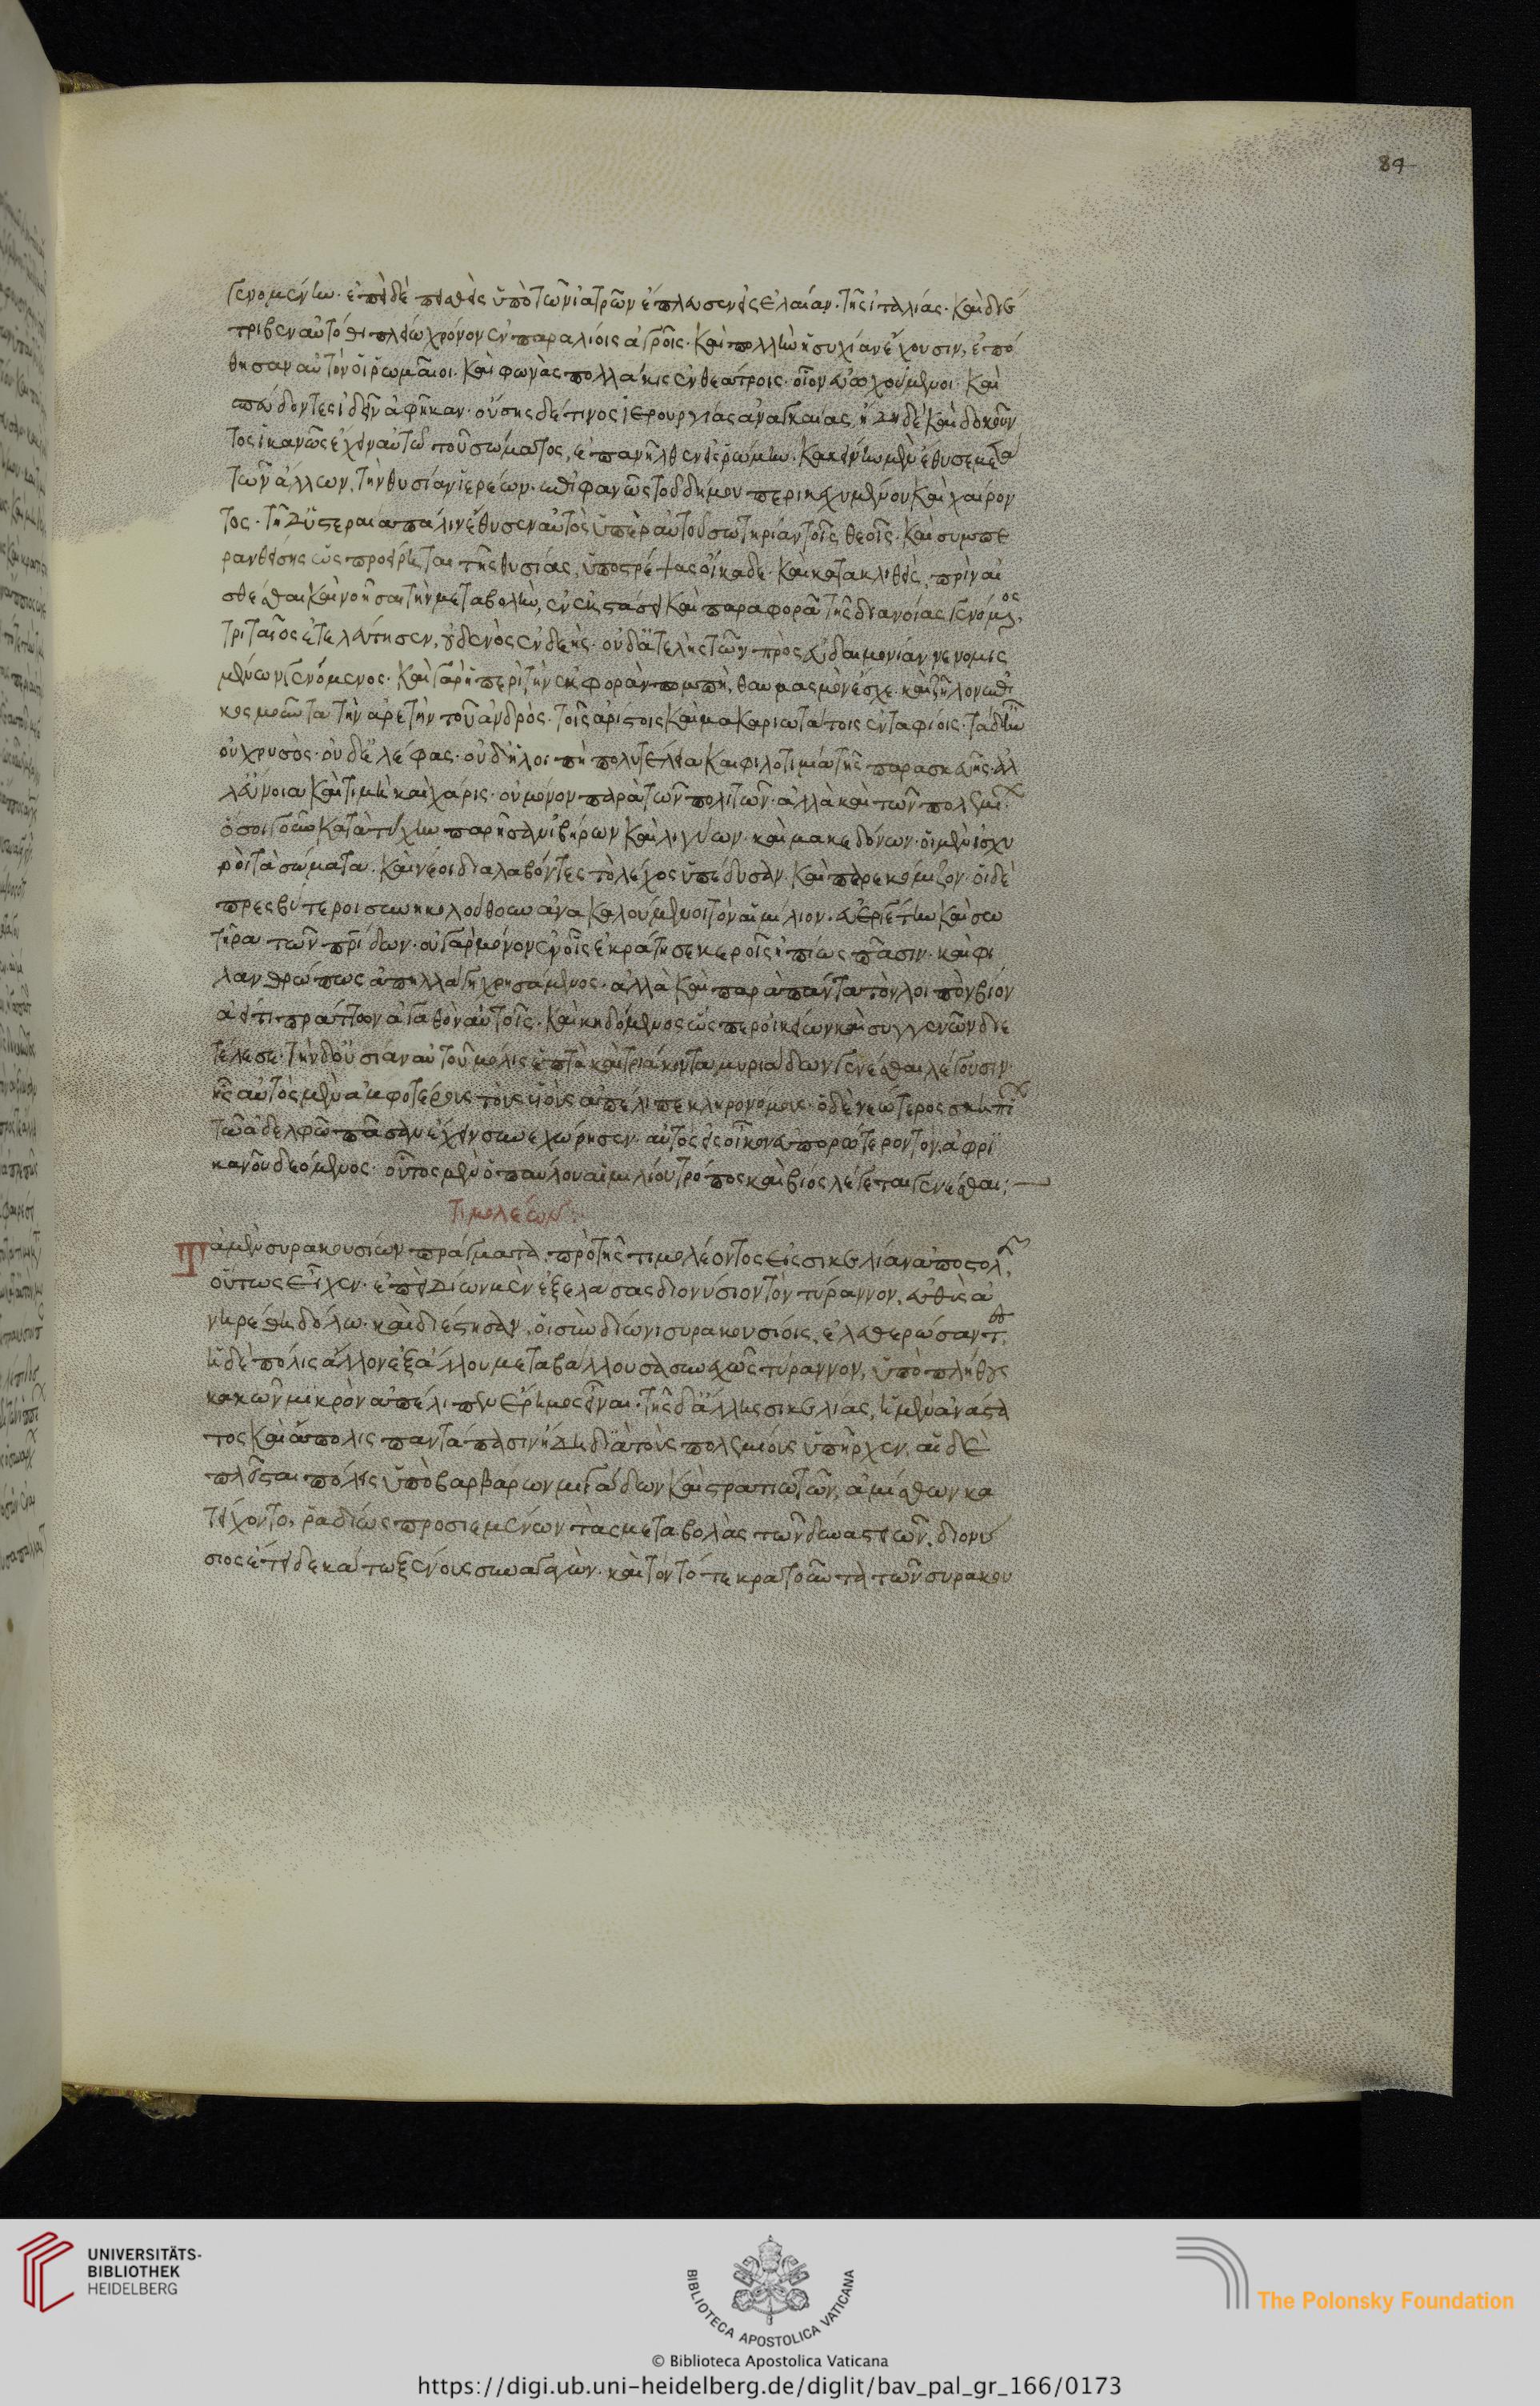 89
γενομένην. ἐπεὶ δὲ πεισθεὶς ὑπὸ τῶν ἰατρῶν ἔπλευσεν εἰς ἐλαίαν τῆς ἰταλίας. καὶ διέ
τριβεν αὐτόθι πλείω χρόνον ἐν παραλίοις ἀγροῖς. καὶ πολλὴν ἡσυχίαν ἔχουσιν, ἐπό
θησαν αὐτὸν οἱ ῥωμαῖοι. καὶ φωνὰς πολλάκις ἐν θεάτροις. οἷον εὐχόμενοι καὶ
σπεύδοντες ἰδεῖν ἀφῆκαν. οὔσης δέ τινος ἱερουργίας ἀναγκαίας, ἤδη δὲ καὶ δοκοῦν
τος ἱκανῶς ἔχειν αὐτῶ τοῦ σώματος, ἐπανῆλθεν εἰς ῥώμην. κἀκείνην μὲν ἔθυσε μετὰ
τῶν ἄλλων, τὴν θυσίαν ἱερέων. ἐπιφανῶς τοῦ δήμου περικεχυμένου καὶ χαίρον
τος. τῆ δ' ὑστεραία πάλιν ἔθυσεν αὐτὸς ὑπὲρ αὐτοῦ σωτηρίαν τοῖς θεοῖς. καὶ συμπε
ρανθείσης ὡς προείρηται τῆς θυσίας, ὑποστρέψας οἴκαδε καὶ κατακλιθεὶς, πρὶν αἰ
σθέσθαι καὶ νοῆσαι τὴν μεταβολὴν, ἐν ἐκστάσει καὶ παραφορᾶ τῆς διανοίας γενόμενος
τριταῖος ἐτελεύτησεν, οὐδενὸς ἐνδεὴς. οὐδ' ἀτελὴς τῶν πρὸς εὐδαιμονίαν νενομισ
μένων γενόμενος. καὶ γὰρ ἡ περὶ τὴν ἐκφορὰν πομπὴ, θαυμασμὸν ἔσχε. καὶ ζῆλον ἐπι
κοσμοῦντα τὴν ἀρετὴν τοῦ ἀνδρὸς. τοῖς ἀρίστοις καὶ μακαριωτάτοις ἐνταφίοις. ταῦτα δ' ἦν
οὐ χρυσὸς. οὐδ' ἐλέφας. οὐδ' ἡ λοιπὴ πολυτέλεια καὶ φιλοτιμία τῆς παρασκευῆς. ἀλ
λ' εὔνοια καὶ τιμὴ καὶ χάρις. οὐ μόνον παρὰ τῶν πολιτῶν. ἀλλὰ καὶ τῶν πολεμίων.
ὅσοι γοῦν κατὰ τύχην παρῆσαν ἰβήρων καὶ λιγύων. καὶ μακεδόνων. οἱ μὲν ἰσχυ
ροὶ τὰ σώματα. καὶ νέοι διαλαβόντες τὸ λέχος ὑπέδυσαν. καὶ παρεκόμιζον. οἱ δὲ
πρεσβύτεροι συνηκολούθουν ἀνακαλούμενοι τὸν αἰμίλιον. εὐεργέτην καὶ σω
τῆρα τῶν πατρίδων. οὐ γὰρ μόνον ἐν οἷς ἐκράτησε καιροῖς ἠπίως πᾶσιν. καὶ φι
λανθρώπως ἀπηλλάγη χρησάμενος. ἀλλὰ καὶ παρὰ πάντα τὸν λοιπὸν βίον
ἀεί τι πράττων ἀγαθὸν αὐτοῖς. καὶ κηδόμενος ὥσπερ οἰκείων καὶ συγγενῶν διε
τέλεσε. τὴν δ' οὐσίαν αὐτοῦ μόλις ἑπτὰ καὶ τριάκοντα μυριάδων γενέσθαι λέγουσιν
ἧς αὐτὸς μὲν ἀμφοτέρους τοὺς υἱοὺς ἀπέλιπε κληρονόμους. ὁ δὲ νεώτερος σκηπίων
τῶ ἀδελφῶ πᾶσαν ἔχειν συνεχώρησεν. αὐτὸς εἰς οἶκον εὐπορώτερον τὸν ἀφρι
κανοῦ δεόμενος. οὗτος μὲν ὁ παύλου αἰμιλίου τρόπος καὶ βίος λέγεται γενέσθαι:
Τιμολέων:
Τὰ μὲν συρακουσίων πράγματα, πρὸ τῆς τιμολέοντος εἰς σικελίαν ἀποστολῆς,
οὕτως εἶχεν. ἐπεὶ δίων μὲν ἐξελάσας διονύσιον τὸν τύραννον, εὐθὺς ἀ
νηρέθη δόλω. καὶ διέστησαν, οἱ σὺν δίωνι συρακουσίοις, ἐλευθερώσαντες.
ἡ δὲ πόλις ἄλλον ἐξ ἄλλου μεταβάλλουσα συνεχῶς τύραννον, ὑπὸ πλήθους
κακῶν μικρὸν ἀπέλιπεν ἔρημος εἶναι. τῆς δ' ἄλλης σικελίας, ἡ μὲν ἀνάστα
τος καὶ ἄπολις παντάπασιν ἤδη διὰ τοὺς πολέμους ὑπῆρχεν, αἱ δὲ
πλεῖσται πόλεις ὑπὸ βαρβάρων μιγάδων καὶ στρατιωτῶν, ἀμίσθων κα
τείχοντο, ῥαδίως προσιεμένων τὰς μεταβολὰς τῶν δυναστειῶν. διονύ
σιος ἔτει δεκάτω ξένους συναγαγὼν. καὶ τὸν τότε κρατοῦντα τῶν συρακου
UNIVERSITÄTS-
BIBLIOTHEK
HEIDELBERG
BIBLIOTECA APOSTOLICA VATICANA
The Polonsky Foundation
© Biblioteca Apostolica Vaticana
https://digi.ub.uni-heidelberg.de/diglit/bav_pal_gr_166/0173